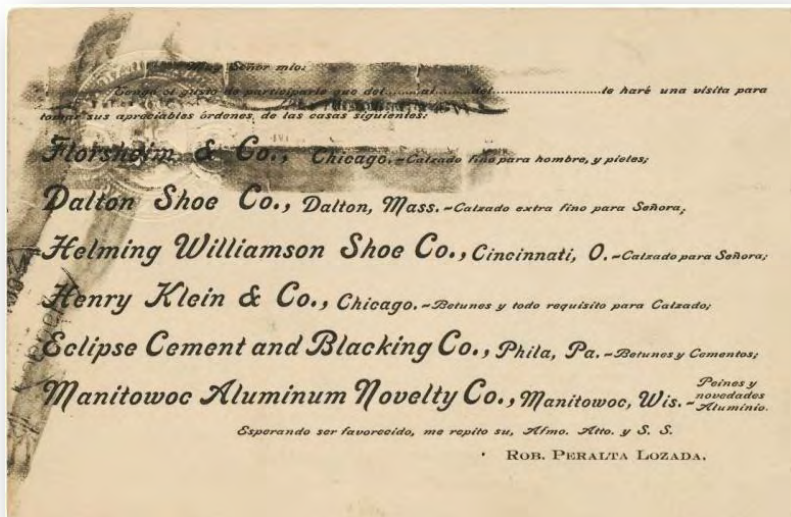 Muy Señor mio:
Tengo el gusto de participarle que del........al........del........................le haré una visita para
tomar sus apreciables órdenes, de las casas siguientes:
Florsheim & Co., Chicago.-Calzado fino para hombre, y pieles;
Dalton Shoe Co., Dalton, Mass.-Calzado extra fino para Señora;
Helming Williamson Shoe Co., Cincinnati, O.-Calzado para Señora;
Henry Klein & Co., Chicago.-Betunes y todo requisito para Calzado;
Eclipse Cement and Blacking Co., Phila, Pa.-Betunes y Cementos;
Manitowoc Aluminum Novelty Co., Manitowoc, Wis.-Peines y
novedades
Aluminio.
Esperando ser favorecido, me repito su, Afmo. Atto. y S. S.
ROB. PERALTA LOZADA.